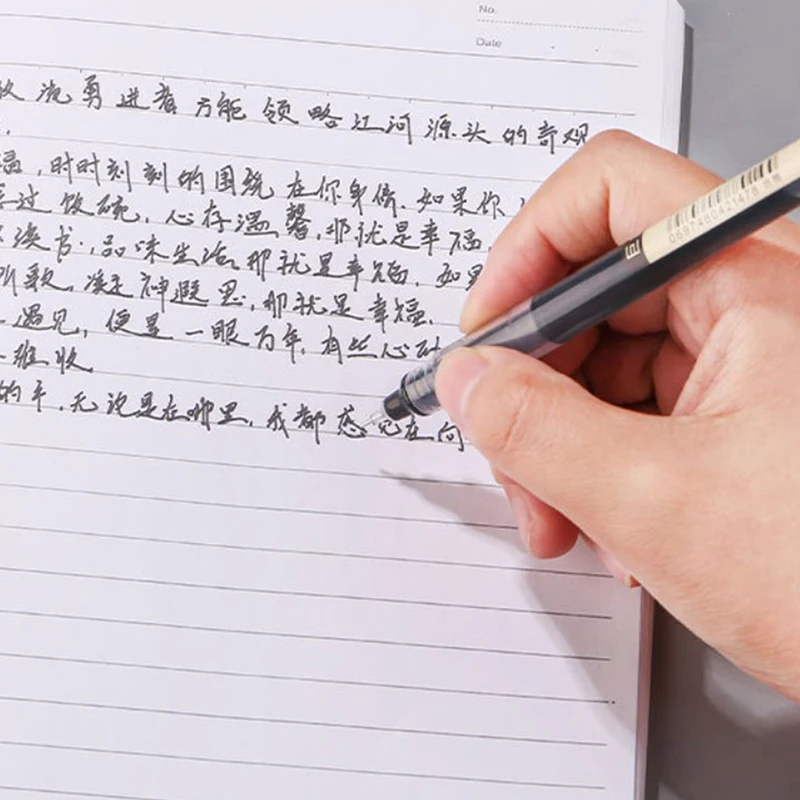 No.
Date
汽勇进者方能领略江河源头的奇观
福,时时刻刻的围绕在你身傍.如果你
过饭碗,心存温馨,那就是幸福.
读书,品味生活,那就是幸福.如果
歌,凝神遐思,那就是幸福.
遇见,便是一眼万年,有些心动
谁收
的手,无论是在哪里,我都感见在向
0697460421478